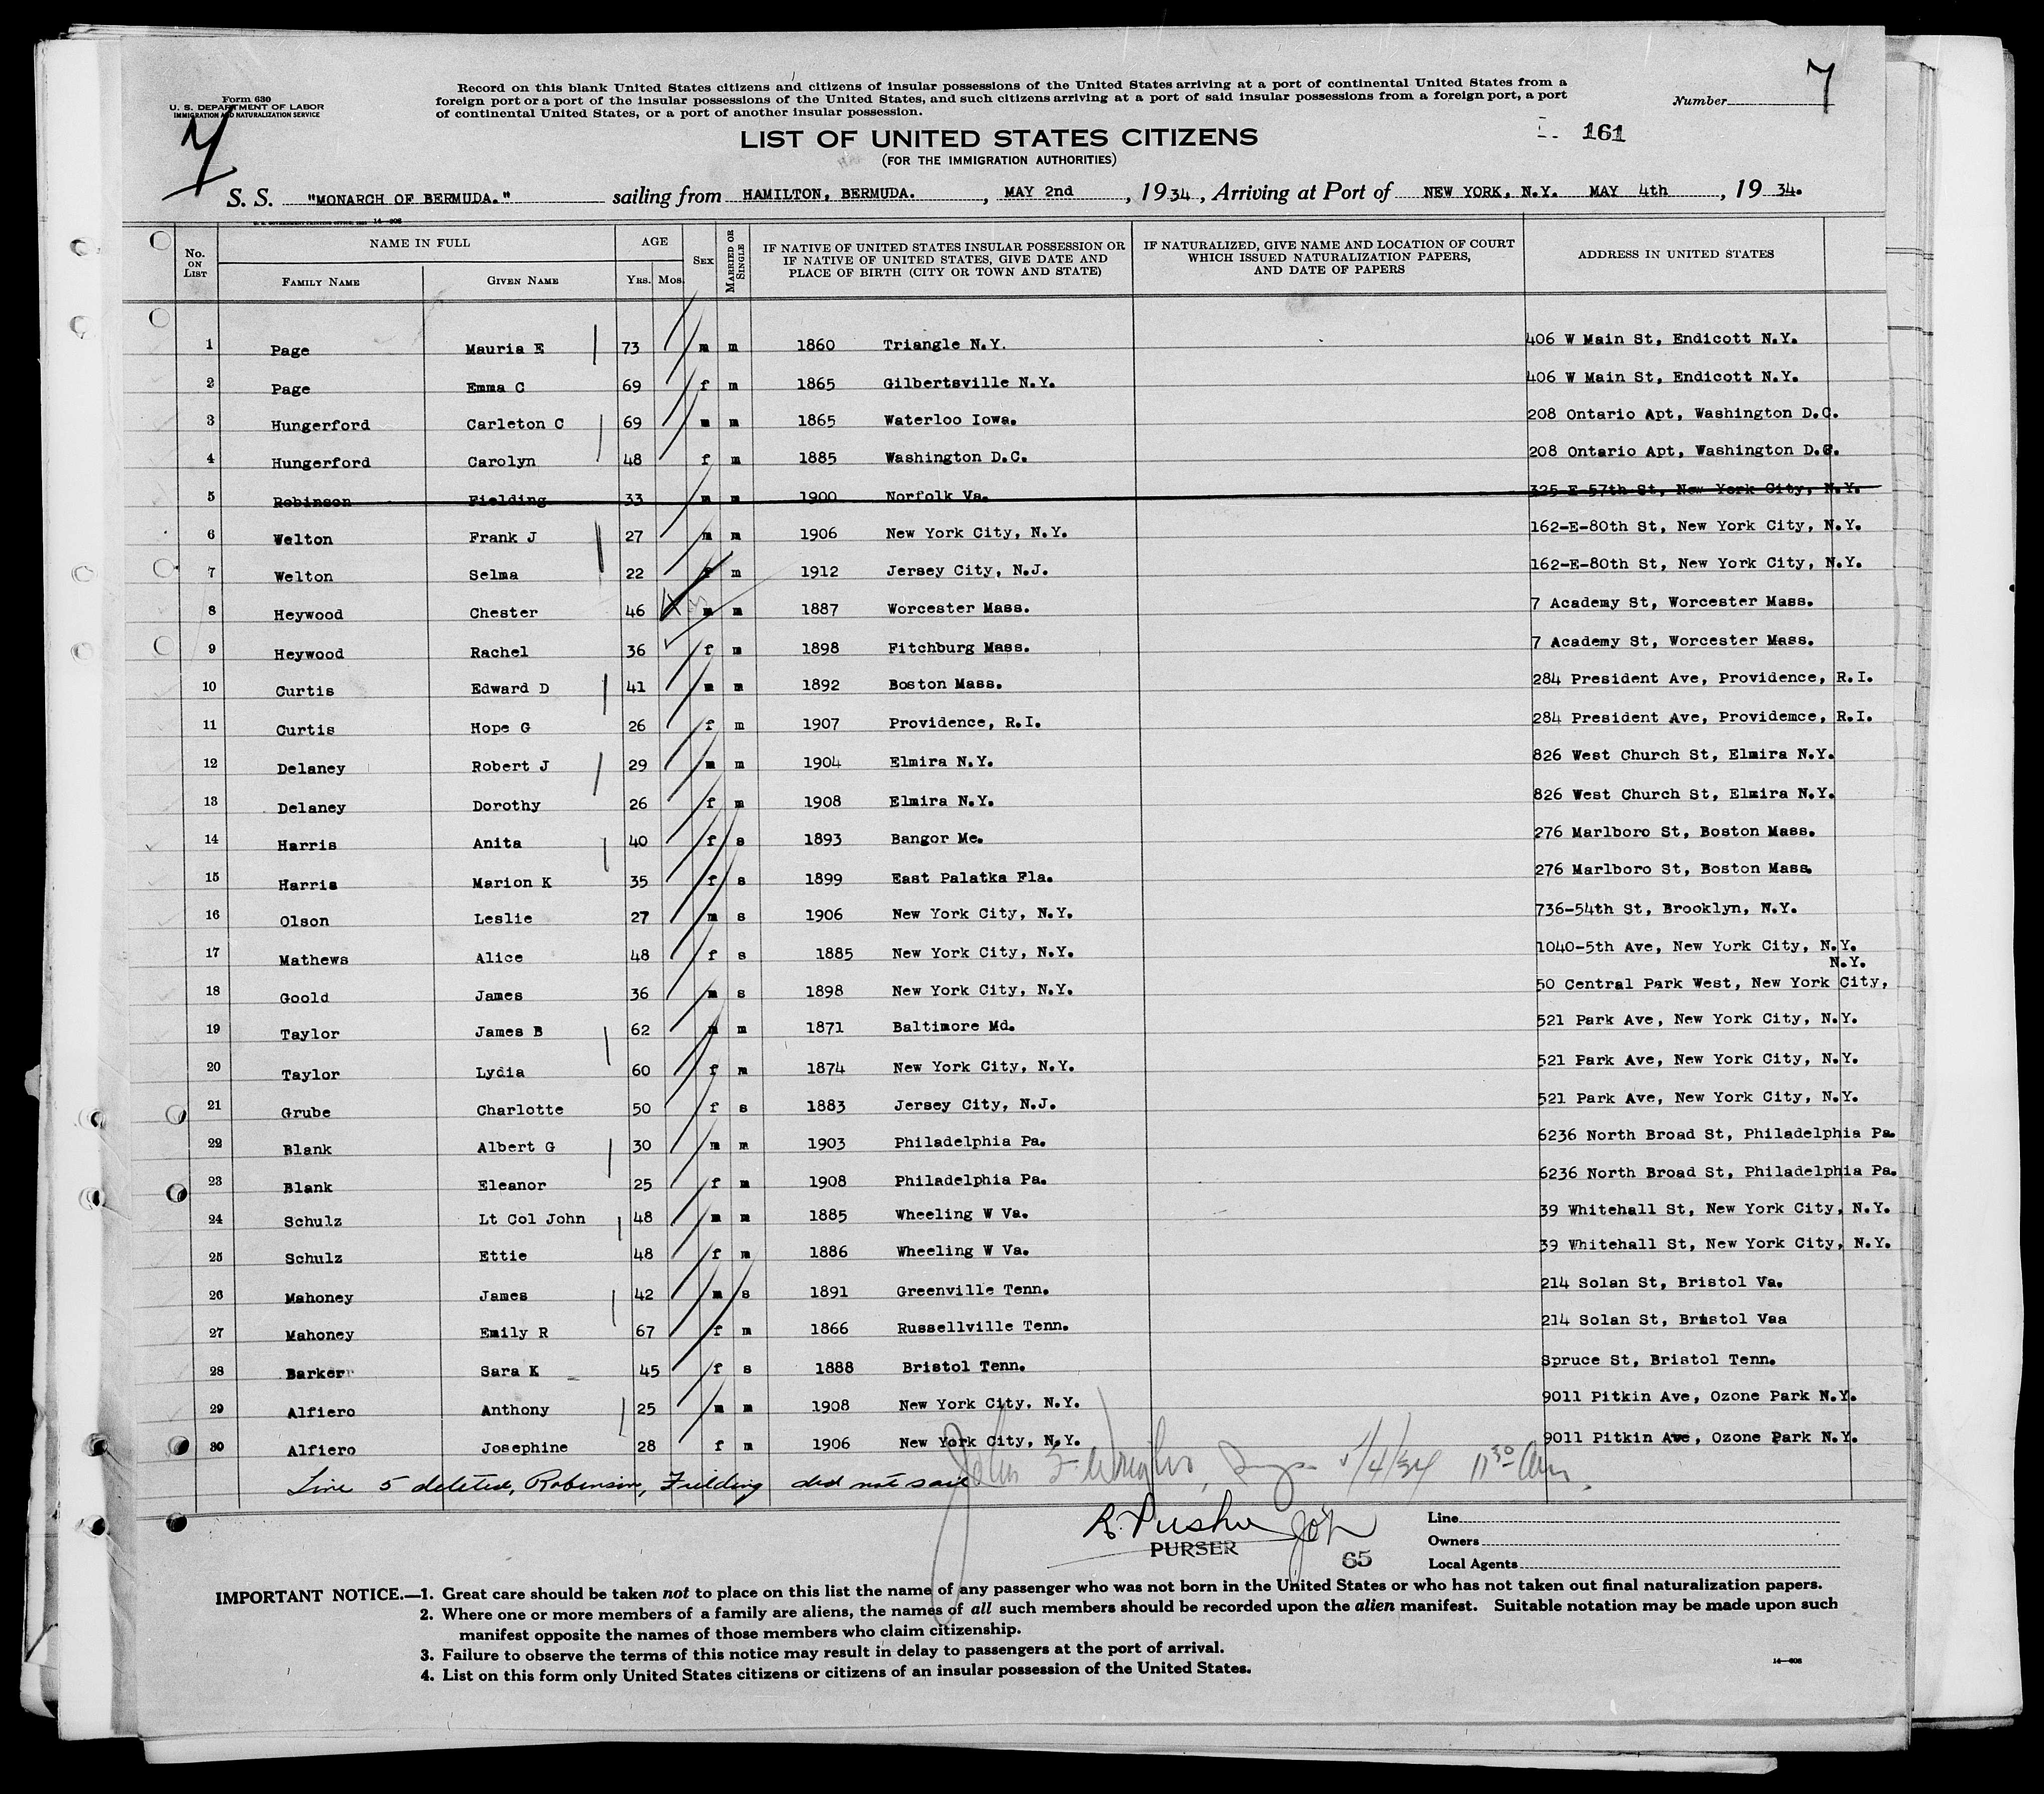 Form 630
U. S. DEPARTMENT OF LABOR
IMMIGRATION AND NATURALIZATION SERVICE
7
Record on this blank United States citizens and citizens of insular possessions of the United States arriving at a port of continental United States from a
foreign port or a port of the insular possessions of the United States, and such citizens arriving at a port of said insular possessions from a foreign port, a port
of continental United States, or a port of another insular possession.
Number 7
161
LIST OF UNITED STATES CITIZENS
(FOR THE IMMIGRATION AUTHORITIES)
S. S. "MONARCH OF BERMUDA." sailing from HAMILTON, BERMUDA. , MAY 2nd , 19 34 , Arriving at Port of NEW YORK, N.Y. MAY 4th , 19 34.
No. ON LIST NAME IN FULL FAMILY NAME GIVEN NAME AGE YRS. MOS. SEX MARRIED OR SINGLE IF NATIVE OF UNITED STATES INSULAR POSSESSION OR IF NATIVE OF UNITED STATES, GIVE DATE AND PLACE OF BIRTH (CITY OR TOWN AND STATE) IF NATURALIZED, GIVE NAME AND LOCATION OF COURT WHICH ISSUED NATURALIZATION PAPERS, AND DATE OF PAPERS ADDRESS IN UNITED STATES
1 Page Mauria E 73 m m 1860 Triangle N.Y. 406 W Main St, Endicott N.Y.
2 Page Emma C 69 f m 1865 Gilbertsville N.Y. 406 W Main St, Endicott N.Y.
3 Hungerford Carleton C 69 m m 1865 Waterloo Iowa. 208 Ontario Apt, Washington D.C.
4 Hungerford Carolyn 48 f m 1885 Washington D.C. 208 Ontario Apt, Washington D.C.
5 Robinson Fielding 33 m m 1900 Norfolk Va. 325-E-57th St, New York City, N.Y.
6 Welton Frank J 27 m m 1906 New York City, N.Y. 162-E-80th St, New York City, N.Y.
7 Welton Selma 22 f m 1912 Jersey City, N.J. 162-E-80th St, New York City, N.Y.
8 Heywood Chester 46 m m 1887 Worcester Mass. 7 Academy St, Worcester Mass.
9 Heywood Rachel 36 f m 1898 Fitchburg Mass. 7 Academy St, Worcester Mass.
10 Curtis Edward D 41 m m 1892 Boston Mass. 284 President Ave, Providence, R.I.
11 Curtis Hope G 26 f m 1907 Providence, R.I. 284 President Ave, Providemce, R.I.
12 Delaney Robert J 29 m m 1904 Elmira N.Y. 826 West Church St, Elmira N.Y.
13 Delaney Dorothy 26 f m 1908 Elmira N.Y. 826 West Church St, Elmira N.Y.
14 Harris Anita 40 f s 1893 Bangor Me. 276 Marlboro St, Boston Mass.
15 Harris Marion K 35 f s 1899 East Palatka Fla. 276 Marlboro St, Boston Mass.
16 Olson Leslie 27 m s 1906 New York City, N.Y. 736-54th St, Brooklyn, N.Y.
17 Mathews Alice 48 f s 1885 New York City, N.Y. 1040-5th Ave, New York City, N.Y.
N.Y.
18 Goold James 36 m s 1898 New York City, N.Y. 50 Central Park West, New York City,
19 Taylor James B 62 m m 1871 Baltimore Md. 521 Park Ave, New York City, N.Y.
20 Taylor Lydia 60 f m 1874 New York City, N.Y. 521 Park Ave, New York City, N.Y.
21 Grube Charlotte 50 f s 1883 Jersey City, N.J. 521 Park Ave, New York City, N.Y.
22 Blank Albert G 30 m m 1903 Philadelphia Pa. 6236 North Broad St, Philadelphia Pa.
23 Blank Eleanor 25 f m 1908 Philadelphia Pa. 6236 North Broad St, Philadelphia Pa.
24 Schulz Lt Col John 48 m m 1885 Wheeling W Va. 39 Whitehall St, New York City, N.Y.
25 Schulz Ettie 48 f m 1886 Wheeling W Va. 39 Whitehall St, New York City, N.Y.
26 Mahoney James 42 m s 1891 Greenville Tenn. 214 Solan St, Bristol Va.
27 Mahoney Emily R 67 f m 1866 Russellville Tenn. 214 Solan St, Bristol Vaa
28 Barker Sara K 45 f s 1888 Bristol Tenn. Spruce St, Bristol Tenn.
29 Alfiero Anthony 25 m m 1908 New York City, N.Y. 9011 Pitkin Ave, Ozone Park N.Y.
30 Alfiero Josephine 28 f m 1906 New York City, N.Y. 9011 Pitkin Ave, Ozone Park N.Y.
Line 5 deleted, Robinson, Fielding did not sail John 5/4/34 11 30 Am.
PURSER
65
Line
Owners
Local Agents
IMPORTANT NOTICE.—1. Great care should be taken not to place on this list the name of any passenger who was not born in the United States or who has not taken out final naturalization papers.
2. Where one or more members of a family are aliens, the names of all such members should be recorded upon the alien manifest. Suitable notation may be made upon such
manifest opposite the names of those members who claim citizenship.
3. Failure to observe the terms of this notice may result in delay to passengers at the port of arrival.
4. List on this form only United States citizens or citizens of an insular possession of the United States.
14—606